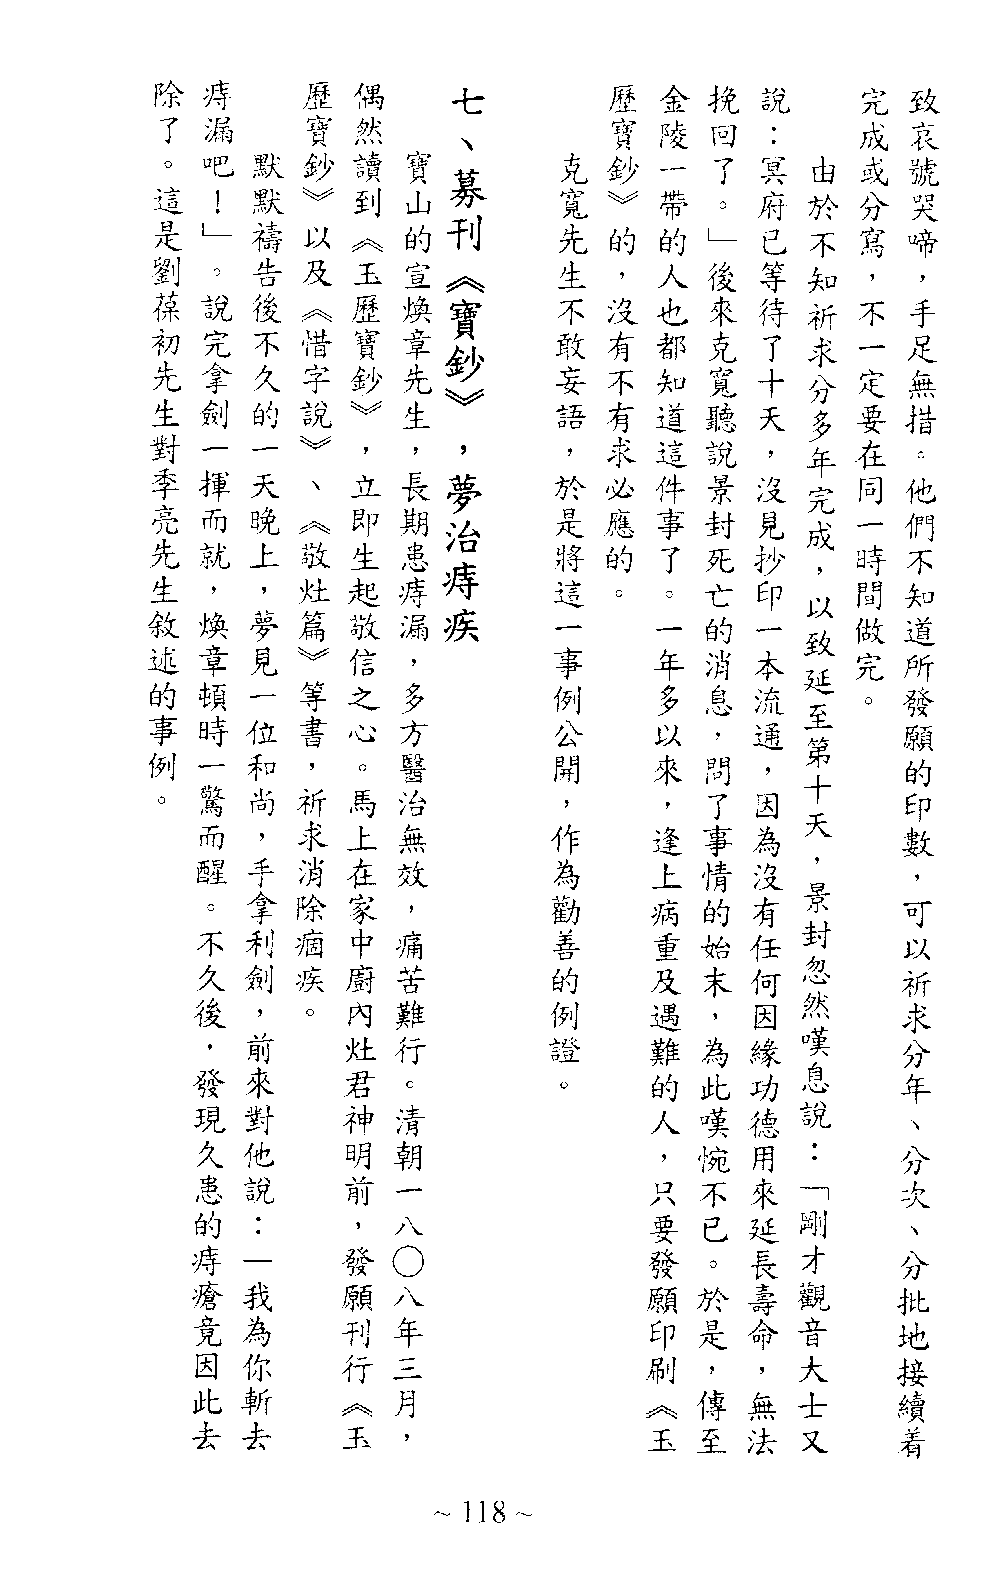 致哀號哭啼，手足無措。他們不知道所發願的印數，可以祈求分年、分次、分批地接續着
完成或分寫，不一定要在同一時間做完。
由於不知祈求分多年完成，以致延至第十天，景封忽然嘆息說：「剛才觀音大士又
說：冥府已等待了十天，沒見抄印一本流通，因為沒有任何因緣功德用來延長壽命，無法
挽回了。」後來克寬聽說景封死亡的消息，問了事情的始末，為此嘆惋不已。於是，傳至
金陵一帶的人也都知道這件事了。一年多以來，逢上病重及遇難的人，只要發願印刷《玉
歷寶鈔》的，沒有不有求必應的。
克寬先生不敢妄語，於是將這一事例公開，作為勸善的例證。
七、募刊《寶鈔》，夢治痔疾
寶山的宣煥章先生，長期患痔漏，多方醫治無效，痛苦難行。清朝一八〇八年三月，
偶然讀到《玉歷寶鈔》，立即生起敬信之心。馬上在家中廚內灶君神明前，發願刊行《玉
歷寶鈔》以及《惜字說》、《敬灶篇》等書，祈求消除痼疾。
默默禱告後不久的一天晚上，夢見一位和尚，手拿利劍，前來對他說：「我為你斬去
痔漏吧！」。說完拿劍一揮而就，煥章頓時一驚而醒。不久後，發現久患的痔瘡竟因此去
除了。這是劉葆初先生對季亮先生敘述的事例。
~ 118 ~